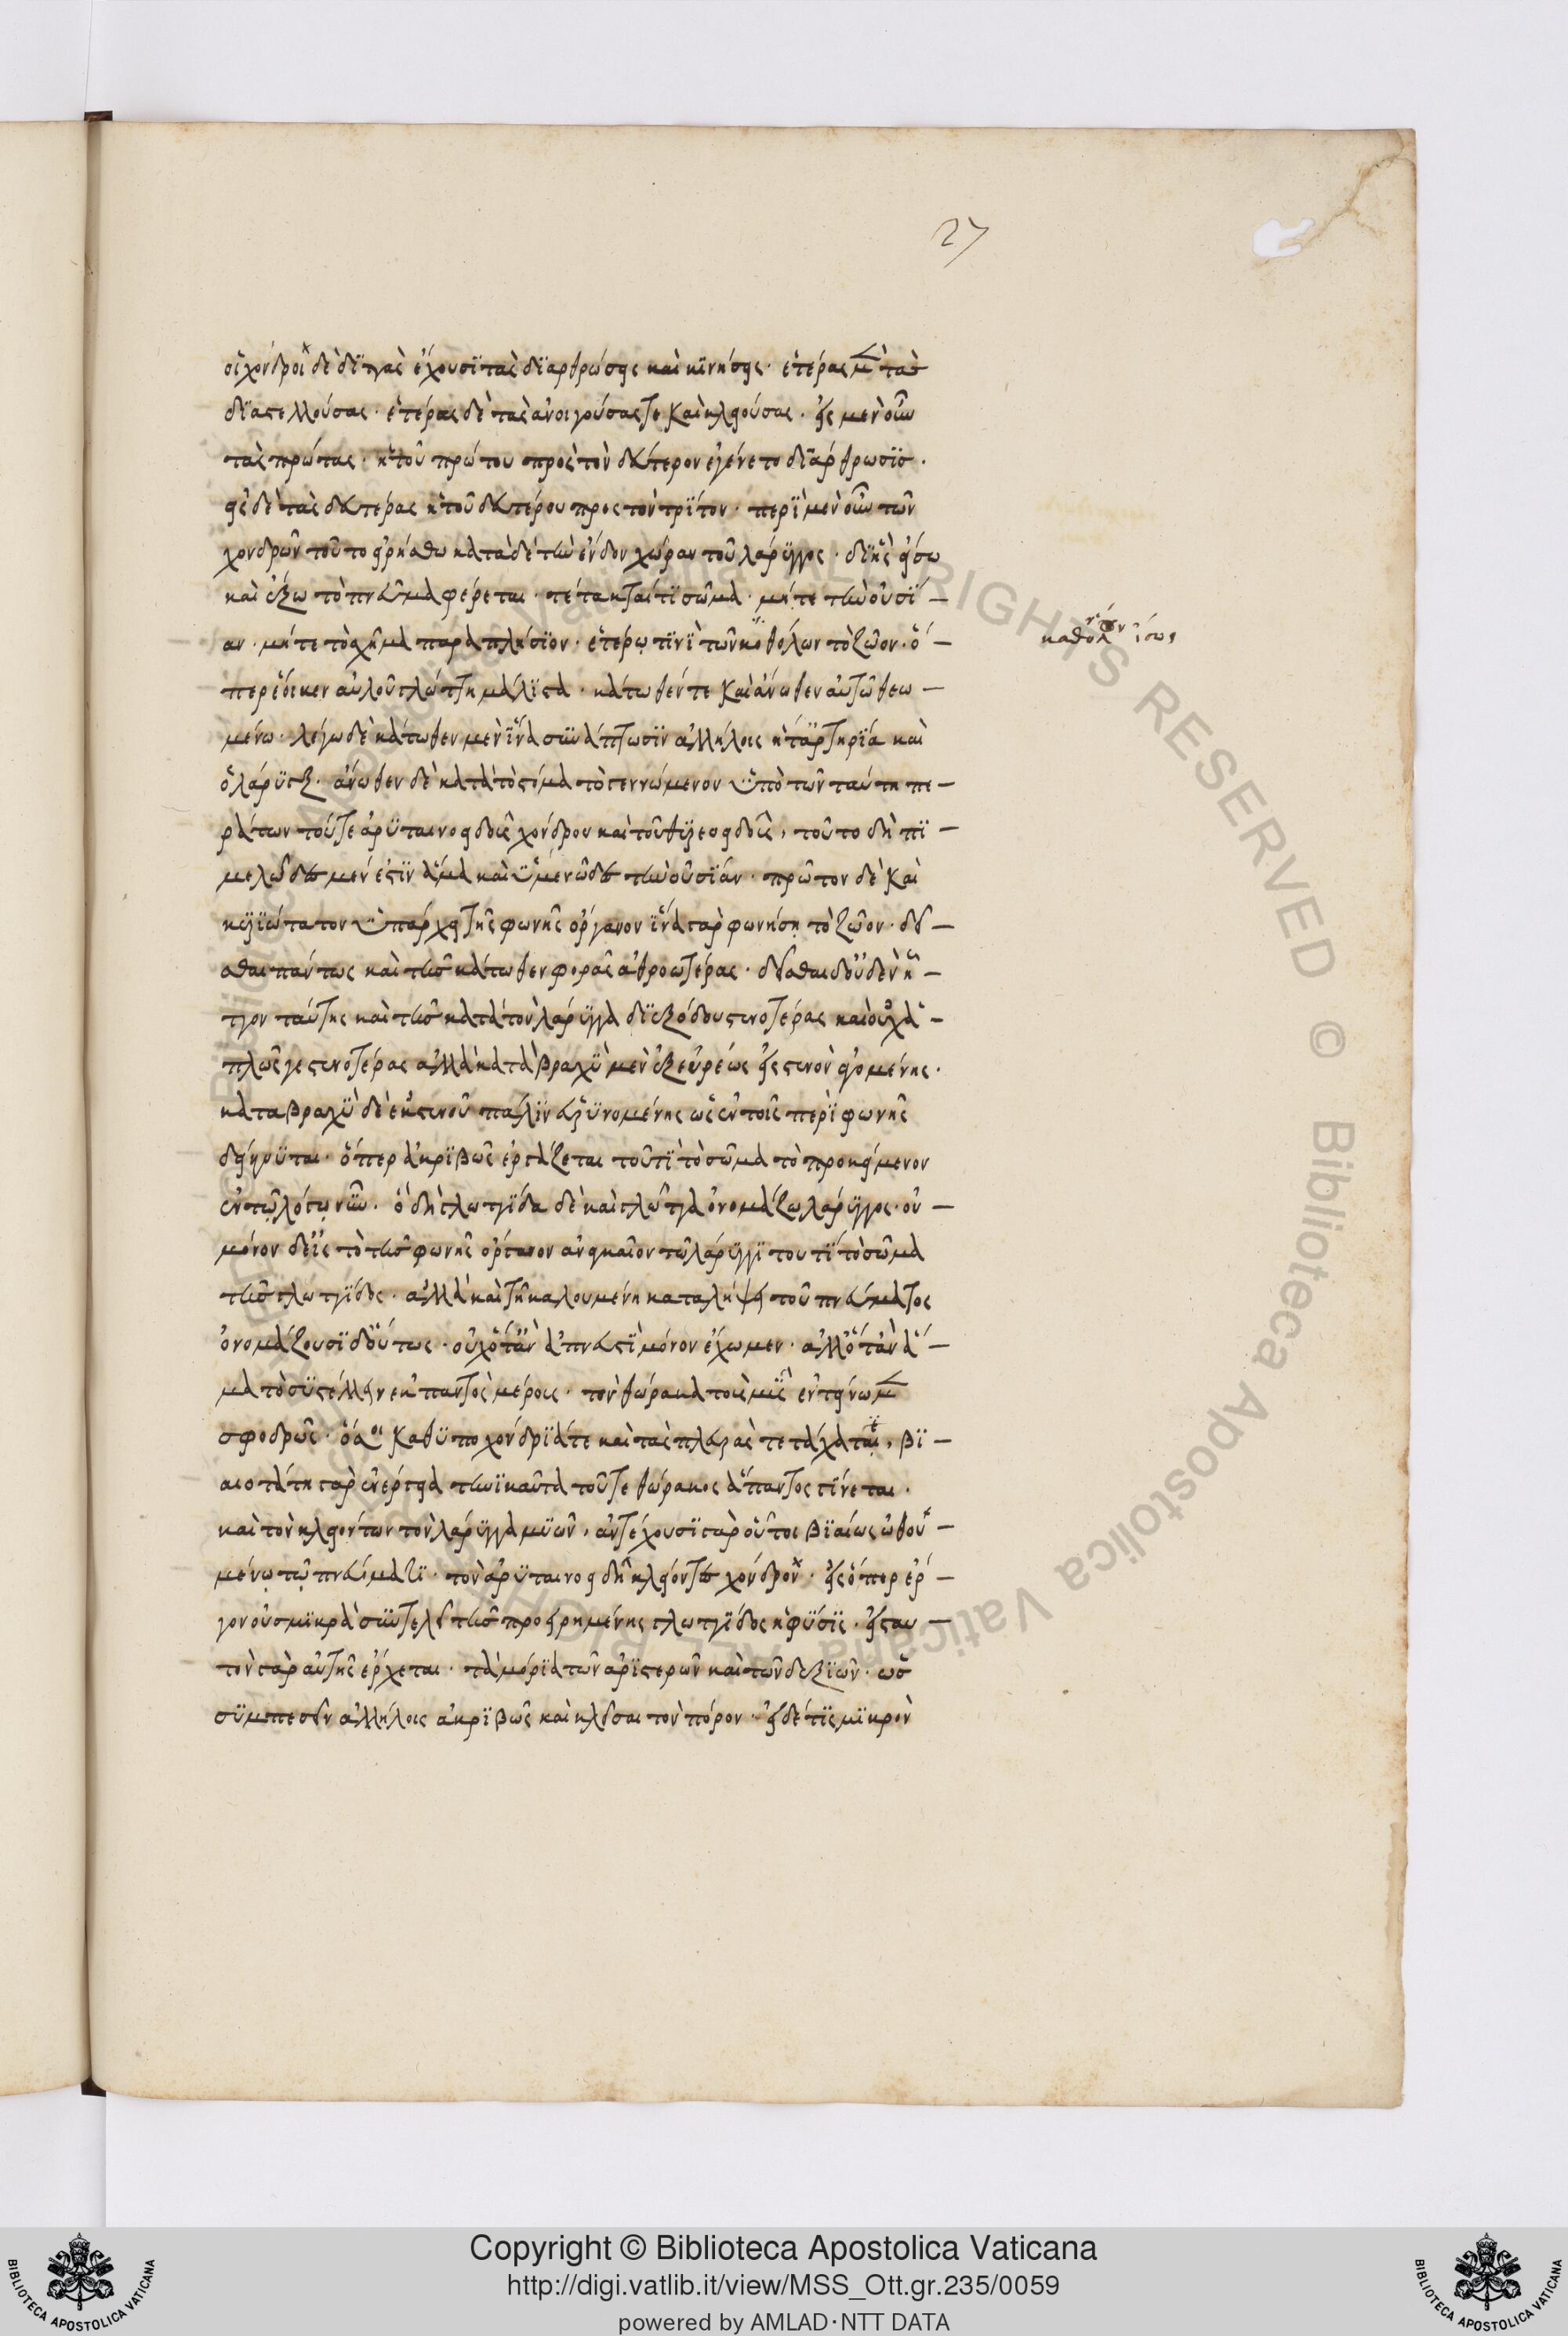 27
οἱ χόνδροι δὲ διττὰς ἔχουσι τὰς διαρθρώσεις καὶ κινήσεις· ἑτέρας μὲν τὰς
διαστελλούσας· ἑτέρας δὲ τὰς ἀνοιγούσας τε καὶ κλειούσας. εἰς μὲν οὖν
τὰς πρώτας· ἡ τοῦ πρώτου πρὸς τὸν δεύτερον ἐγένετο διάρθρωσις.
εἰς δὲ τὰς δευτέρας ἡ τοῦ δευτέρου πρὸς τὸν τρίτον· περὶ μὲν οὖν τῶν
χονδρῶν τοῦτο εἰρήσθω κατὰ δὲ τὴν ἔνδον χώραν τοῦ λάρυγγος· δι' ἧς εἴσω
καὶ ἔξω τὸ πνεῦμα φέρεται· τέτακταί τι σῶμα· μήτε τὴν οὐσί-
αν· μήτε τὸ σχῆμα παραπλήσιον· ἑτέρῳ τινὶ τῶν καθόλων τὸ ζῶον· ὅ-
καθόλον ἴσως
περ ἔοικεν αὐλοῦ γλώττῃ μάλιστα· κάτωθέν τε καὶ ἄνωθεν αὐτῶ θεω-
μένω· λέγω δὲ κάτωθεν μὲν ἵνα συνάπτωσιν ἀλλήλοις ἥ τ' ἀρτηρία καὶ
ὁ λάρυγξ. ἄνωθεν δὲ κατὰ τὸ στόμα τὸ γεννώμενον ὑπὸ τῶν ταύτη πε-
ράτων τοῦ τε ἀρυταινοειδοῦς χόνδρου καὶ τοῦ θυρεοειδοῦς, τοῦτο δὴ πι-
μελῶδες μέν ἐστιν ἅμα καὶ ὑμενῶδες τὴν οὐσίαν· πρῶτον δὲ καὶ
κυριώτατον ὑπάρχει τῆς φωνῆς ὄργανον ἵνα γὰρ φωνήση τὸ ζῶον· δεῖ-
σθαι πάντως καὶ τῆς κάτωθεν φορᾶς ἀθροωτέρας· δεῖσθαι δ' οὐδὲν ἧ-
ττον ταύτης καὶ τῆς κατὰ τὸν λάρυγγα διεξόδου στενοτέρας καὶ οὐχ ἁ-
πλῶς γε στενοτέρας ἀλλὰ κατὰ βραχὺ μὲν ἐξ εὐρέως εἰς στενὸν ἀγομένης.
κατὰ βραχὺ δὲ ἐκ στενοῦ πάλιν εὐρυνομένης ὡς ἐν τοῖς περὶ φωνῆς
δείκνυται· ὅπερ ἀκριβῶς ἐργάζεται τουτὶ τὸ σῶμα τὸ προκείμενον
ἐν τῷ λόγῳ νῦν. ὃ δὴ γλωττίδα δὲ καὶ γλῶττα ὀνομάζω λάρυγγος· οὐ
μόνον δ' εἰς τὸ τῆς φωνῆς ὄργανον ἀναγκαῖον τῶ λάρυγγι τουτὶ τὸ σῶμα
τῆς γλωττίδος· ἀλλὰ καὶ τῆ καλουμένη καταλήψει τοῦ πνεύματος
ὀνομάζουσι δ' οὕτως· οὐχ ὅταν ἀπνευστὶ μόνον ἔχωμεν· ἀλλ' ὅταν ἅ-
μα τὸ συστέλλειν ἐκ παντὸς μέρους· τὸν θώρακα τοὺς μῦς ἐντείνωμεν
σφοδρῶς· ὅσοι καθ' ὑποχόνδριά τε καὶ τὰς πλευρὰς τετάχαται, βι-
αιοτάτη γὰρ ἐνέργεια τηνικαῦτα τοῦ τε θώρακος ἅπαντος γίνεται.
καὶ τὸν κλειόντων τὸν λάρυγγα μυῶν, ἀντέχουσι γὰρ οὗτοι βιαίως ὠθου-
μένῳ τῷ πνεύματι· τὸν ἀρυταινοειδῆ κλείοντες χόνδρον· εἰς ὅπερ ἔρ-
γον οὐ σμικρὰ συντελεῖ τῆς προειρημένης γλωττίδος ἡ φύσις· εἰς ταυ-
τὸν γὰρ αὐτῆς ἔρχεται· τὰ μόρια τῶν ἀριστερῶν καὶ τῶν δεξιῶν· ὡς
συμπεσεῖν ἀλλήλοις ἀκριβῶς καὶ κλεῖσαι τὸν πόρον· εἰ δέ τις μικρὸν
Copyright © Biblioteca Apostolica Vaticana
http://digi.vatlib.it/view/MSS_Ott.gr.235/0059
powered by AMLAD·NTT DATA